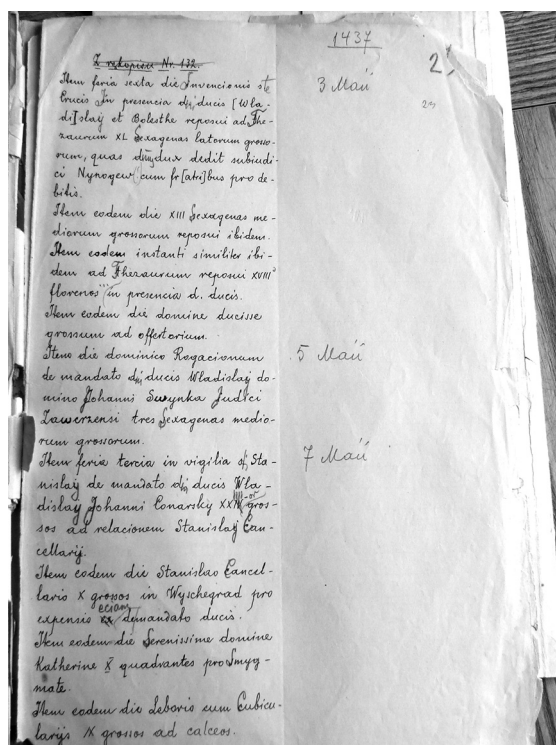 Z rękopisu Nr. 132.
1437
2,
29
Item feria sexta die Invencionis ste
3 Maii
Crucis In presencia dni ducis [Wla-
di]slaij et Bolesthe reposui ad The-
zaurum XL Sexagenas latorum grosso-
rum, quas dnus dux dedit subiudi-
ci Nynogew cum fr[atri]bus pro de-
bitis.
Item eodem die XIII Sexagenas me-
diorum grossorum reposui ibidem.
Item eodem instanti similiter ibi-
dem ad Thezaurum reposui XVIII
florenos in presencia d. ducis.
Item eodem die domine ducisse
grossum ad offertorium.
Item die dominico Rogacionum
5 Maii
de mandato dni ducis Wladislaij do-
mino Johanni Swynka Judici
Zawerzensi tres Sexagenas medio-
rum grossorum.
Item feria tercia in vigilia sti Sta-
7 Maii
nislaij de mandato dni ducis Wla-
dislaij Johanni Conarskij gros-
sos ad relacionem Stanislaij Can-
cellarij.
Item eodem die Stanislao Cancel-
lario X grossos in Wyschegrad pro
expensis eciam de mandato ducis.
Item eodem die Serenissime domine
Katherine X quadrantes pro Smyg-
mate.
Item eodem die Leboris cum Cubicu-
larijs IX grossos ad calceos.